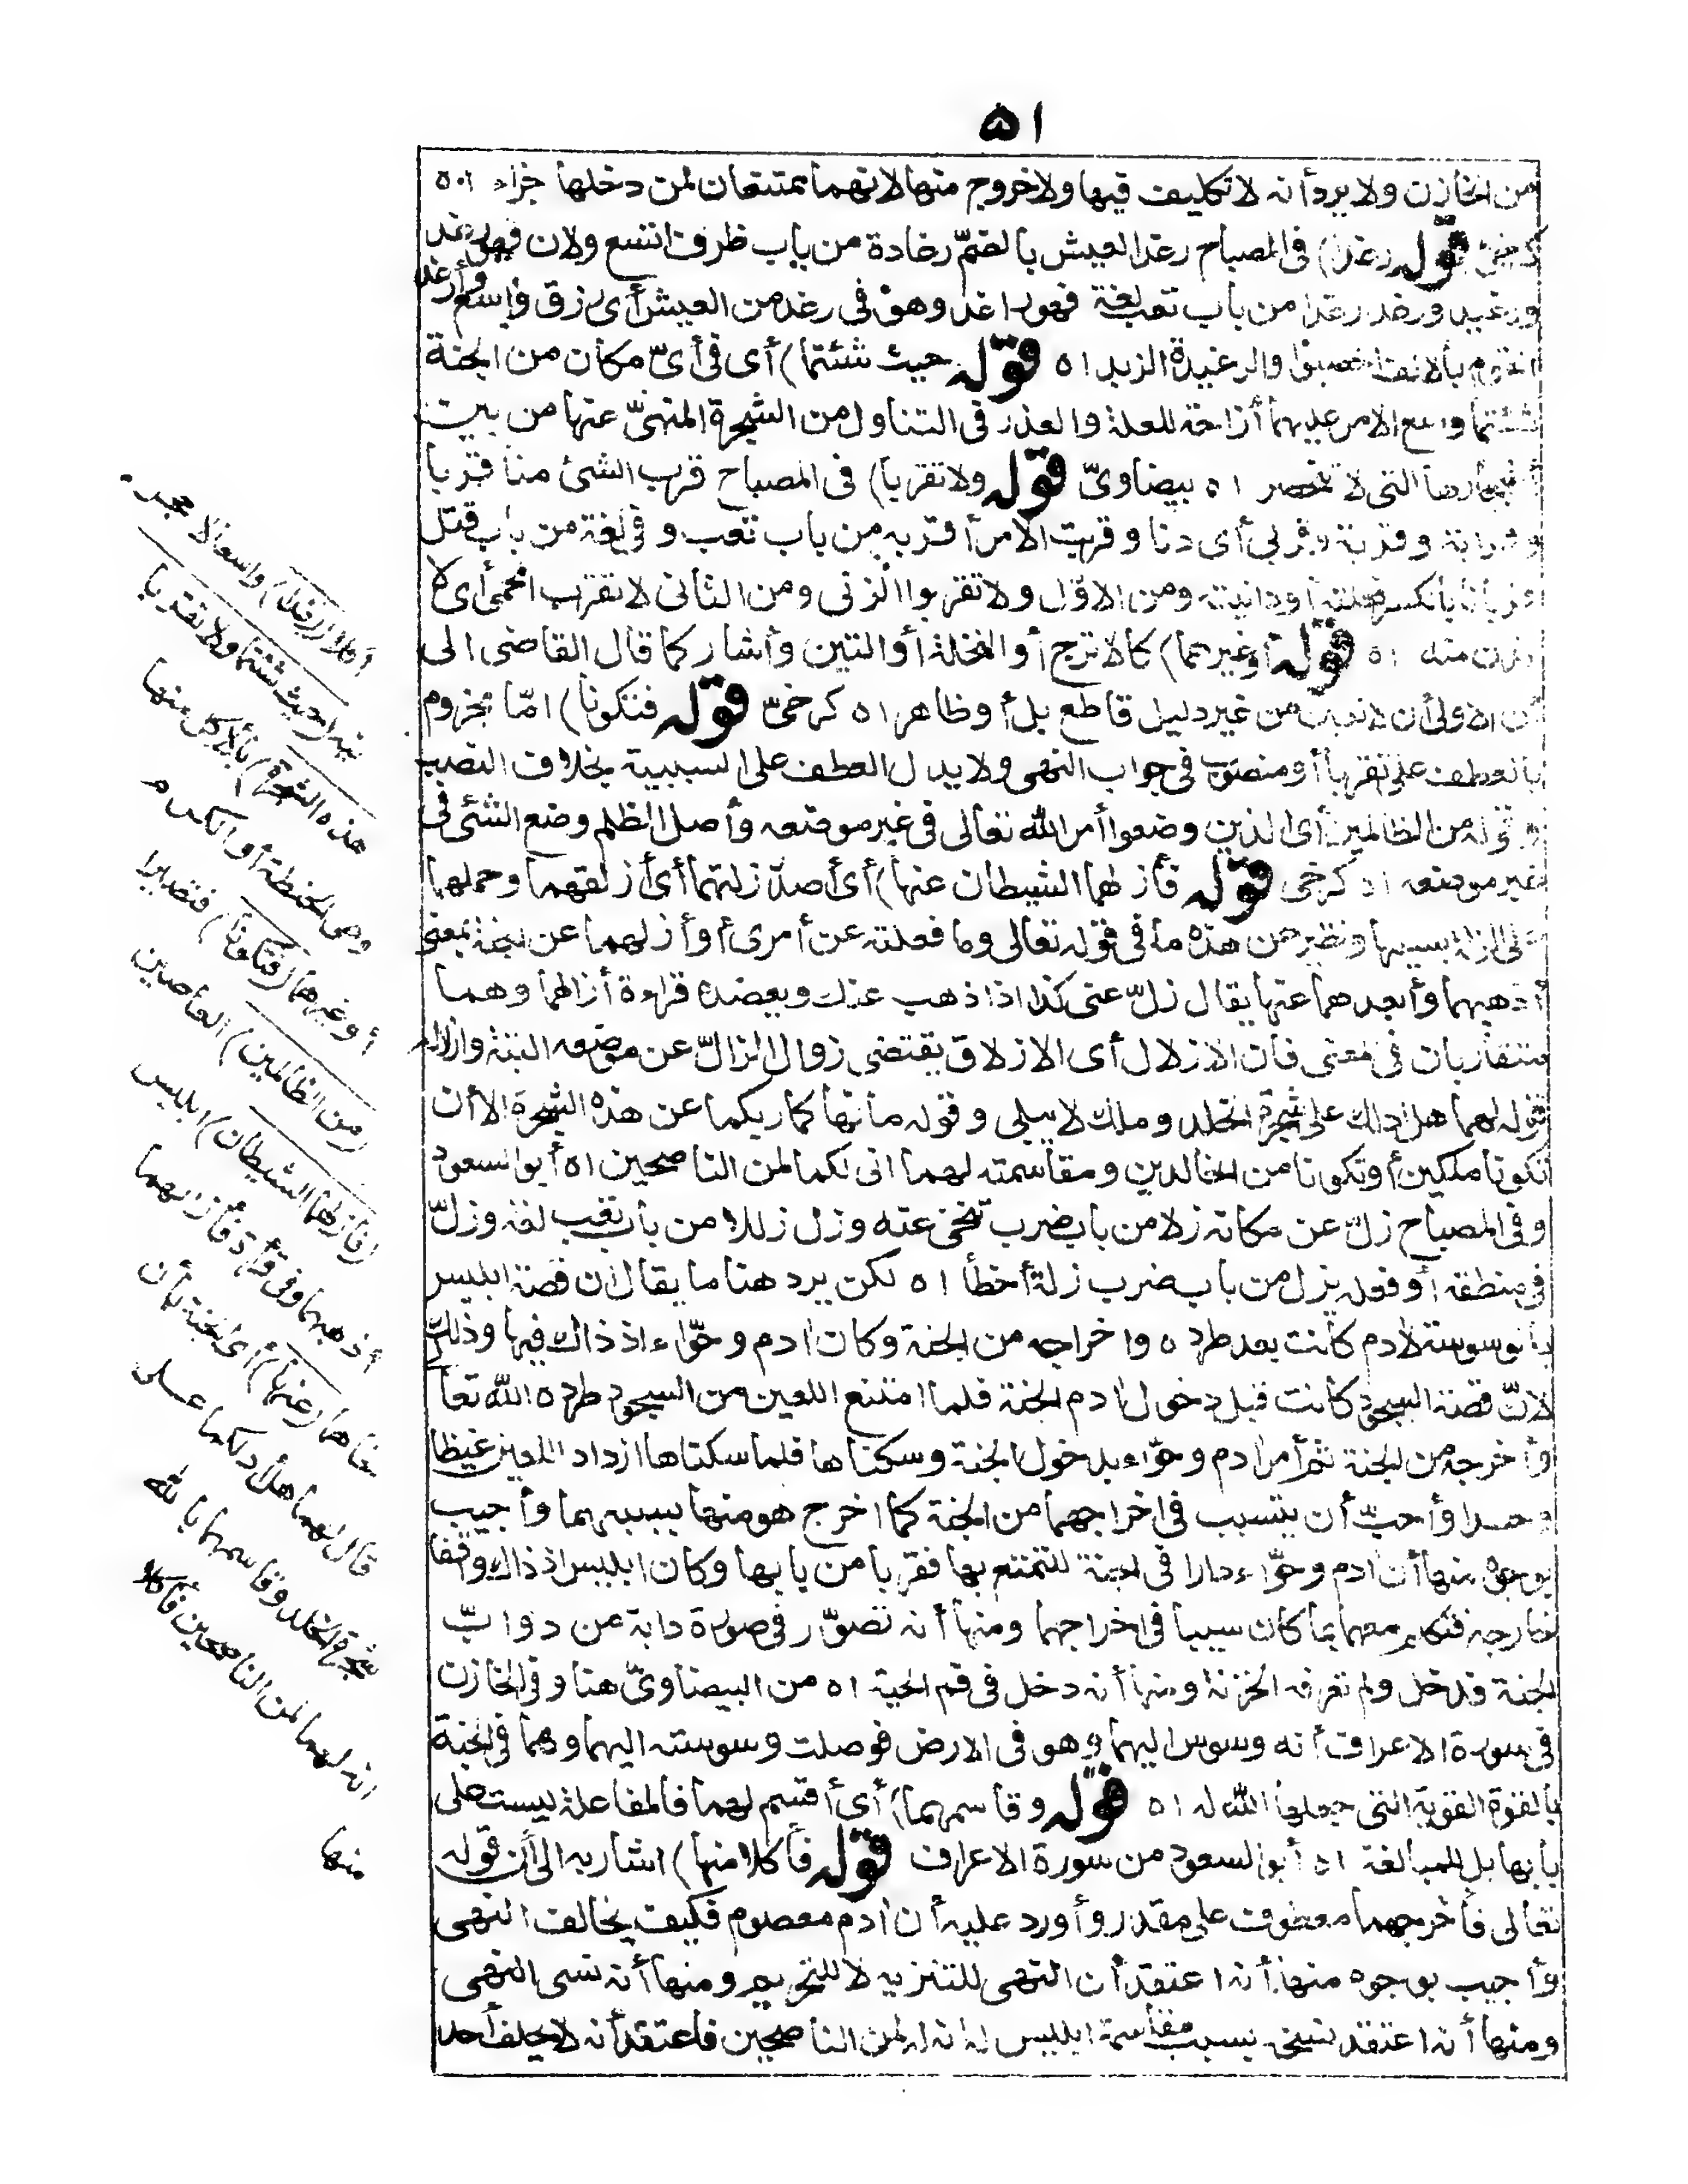 ٥١
من الخازن ولا يرد أنه لا تكليف فيها ولا خروج منها لانهما يمتنعان لمن دخلها جزاء اه
كرخى قوله رغدا) فى المصباح رغد العيش بالضم رغادة من باب ظرف اتسع ولان فهو رغد
ورغيد ورغد رغدا من باب تعب لغة فهو راغد وهو فى رغد من العيش أى رزق واسع وأرغد
القوم بالالف اخصبوا والرغيدة الزبد اه قوله حيث شئتما) أى فى أىّ مكان من الجنة
شئتما وسع الامر عليهما أزاحة للعلة والعذر فى التناول من الشجرة المنهىّ عنها من بين
أشجارها التى لا تنحصر اه بيضاوىّ قوله ولا تقربا) فى المصباح قرب الشئ منا قربا
وقرابة وقربة وقربى أى دنا وقربت الامر أقربه من باب تعب وفى لغة من باب قتل
قربانا بالكسر فعلته أو دانيته ومن الاوّل ولا تقربوا الزنى ومن الثانى لا تقرب الحمى أى لا
تدن منه اه قوله أو غيرهما) كالاترج أو النخلة أو التين وأشار كما قال القاضى الى
أن الاولى أن لا تعين من غير دليل قاطع بل أو ظاهر اه كرخىّ قوله فتكونا) امّا مجزوم
بالعطف على تقربا أو منصوب فى جواب النهى ولا يدل العطف على السببية بخلاف النصب
وقوله من الظالمين أى الذين وضعوا أمر الله تعالى فى غير موضعه وأصل الظلم وضع الشئ فى
غير موضعه اه كرخى قوله فأزلهما الشيطان عنها) أى أصدر زلتهما أى أزلقهما وحملهما
على الزلة بسببها ونظير عن هذه ما فى قوله تعالى وما فعلته عن أمرى أو أزلهما عن الجنة بمعنى
أذهبهما وأبعدهما عنها يقال زلّ عنى كذا اذا ذهب عنك ويعضده قراءة أزالهما وهما
متقاربان فى المعنى فان الازلال أى الازلاق يقتضى زوال الزالّ عن موضعه البتة وازلاله
قوله لهما هل أدلك على شجرة الخلد وملك لا يبلى وقوله ما نهاكما ربكما عن هذه الشجرة الا أن
تكونا ملكين أو تكونا من الخالدين ومقاسمته لهما انى لكما لمن الناصحين اه أبو السعود
وفى المصباح زلّ عن مكانه زلا من باب ضرب تنحى عنه وزل زللا من باب تعب لغة وزلّ
فى منطقه أو فعله يزل من باب ضرب زلة أخطأ اه لكن يرد هنا ما يقال ان قصة ابليس
بالوسوسة لادم كانت بعد طرده واخراجه من الجنة وكان ادم وحوّاء اذ ذاك فيها وذلك
لانّ قصة السجود كانت قبل دخول ادم الجنة فلما امتنع اللعين من السجود طرده الله تعا
وأخرجه من الجنة ثم أمر ادم وحوّاء بدخول الجنة وسكناها فلما سكناها ازداد اللعين غيظا
وحسدا وأحبّ أن يتسبب فى اخراجهما من الجنة كما اخرج هو منها بسببهما وأجيب
بوجوه منها أن ادم وحوّاء دارا فى الجنة للتمتع بها فقربا من بابها وكان ابليس اذ ذاك واقفا
خارجه فتكلم معهما بما كان سببا فى اخراجهما ومنها أنه تصوّر فى صورة دابة من دوابّ
الجنة فدخل ولم تعرفه الخزنة ومنها أنه دخل فى فم الحية اه من البيضاوىّ هنا وفى الخازن
فى سورة الاعراف أنه وسوس اليهما وهو فى الارض فوصلت وسوسته اليهما وهما فى الجنة
بالقوة القوية التى جعلها الله له اه قوله وقاسمهما) أى أقسم لهما فالمفاعلة ليست على
بابها بل للمبالغة اه أبو السعود من سورة الاعراف قوله فأكلا منها) اشار به الى أن قوله
تعالى فأخرجهما معطوف على مقدر وأورد عليه أن ادم معصوم فكيف يخالف النهى
وأجيب بوجوه منها أنه اعتقد أن النهى للتنزيه لا للتحريم ومنها أنه نسى النهى
ومنها أنه اعتقد نسخه بسبب مقاسمة ابليس له انه له لمن الناصحين فاعتقد أنه لا يحلف أحد
أكلا (رغدا) واسعا لا حجر
فيه (حيث شئتما ولا تقربا
هذه الشجرة) بالأكل منها
وهى الحنطة أو الكرم
أو غيرهما (فتكونا) فتصيرا
(من الظالمين) العاصين
(فأزلهما الشيطان) ابليس
أذهبهما وفى قراءة فأزالهما
نحاهما (عنها) أى الجنة بأن
قال لهما هل أدلكما على
شجرة الخلد وقاسمهما بالله
انه لهما لمن الناصحين فأكلا
منها